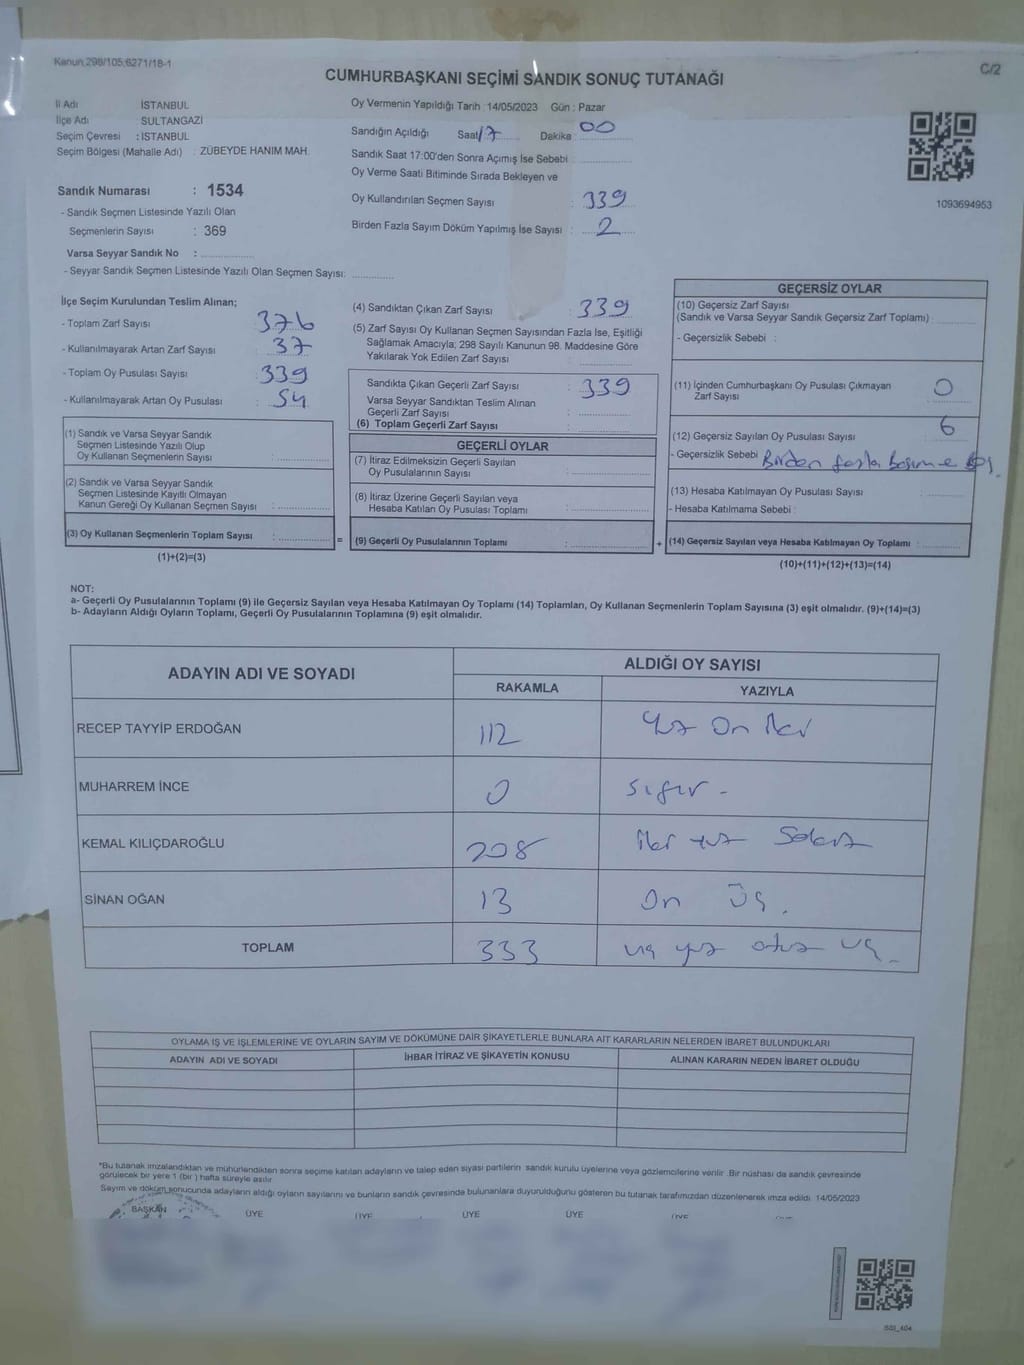 Kanun 298/105;6271/18-1
C/2
CUMHURBAŞKANI SEÇİMİ SANDIK SONUÇ TUTANAĞI
İl Adı İSTANBUL
İlçe Adı SULTANGAZİ
Seçim Çevresi : İSTANBUL
Seçim Bölgesi (Mahalle Adı) : ZÜBEYDE HANIM MAH.
Sandık Numarası : 1534
- Sandık Seçmen Listesinde Yazılı Olan
Seçmenlerin Sayısı : 369
Varsa Seyyar Sandık No :
- Seyyar Sandık Seçmen Listesinde Yazılı Olan Seçmen Sayısı:
Oy Vermenin Yapıldığı Tarih : 14/05/2023 Gün : Pazar
Sandığın Açıldığı Saat 17 Dakika 00
Sandık Saat 17:00'den Sonra Açımış İse Sebebi
Oy Verme Saati Bitiminde Sırada Bekleyen ve
Oy Kullandırılan Seçmen Sayısı : 339
Birden Fazla Sayım Döküm Yapılmış İse Sayısı : 2
1093694953
İlçe Seçim Kurulundan Teslim Alınan;
- Toplam Zarf Sayısı : 376
- Kullanılmayarak Artan Zarf Sayısı : 37
- Toplam Oy Pusulası Sayısı : 339
- Kullanılmayarak Artan Oy Pusulası : 54
(1) Sandık ve Varsa Seyyar Sandık
Seçmen Listesinde Yazılı Olup
Oy Kullanan Seçmenlerin Sayısı :
(2) Sandık ve Varsa Seyyar Sandık
Seçmen Listesinde Kayıtlı Olmayan
Kanun Gereği Oy Kullanan Seçmen Sayısı :
(3) Oy Kullanan Seçmenlerin Toplam Sayısı :
(1)+(2)=(3)
(4) Sandıktan Çıkan Zarf Sayısı : 339
(5) Zarf Sayısı Oy Kullanan Seçmen Sayısından Fazla İse, Eşitliği
Sağlamak Amacıyla; 298 Sayılı Kanunun 98. Maddesine Göre
Yakılarak Yok Edilen Zarf Sayısı :
Sandıkta Çıkan Geçerli Zarf Sayısı : 339
Varsa Seyyar Sandıktan Teslim Alınan
Geçerli Zarf Sayısı :
(6) Toplam Geçerli Zarf Sayısı :
GEÇERLİ OYLAR
(7) İtiraz Edilmeksizin Geçerli Sayılan
Oy Pusulalarının Sayısı :
(8) İtiraz Üzerine Geçerli Sayılan veya
Hesaba Katılan Oy Pusulası Toplamı :
= (9) Geçerli Oy Pusulalarının Toplamı :
GEÇERSİZ OYLAR
(10) Geçersiz Zarf Sayısı
(Sandık ve Varsa Seyyar Sandık Geçersiz Zarf Toplamı) :
- Geçersizlik Sebebi :
(11) İçinden Cumhurbaşkanı Oy Pusulası Çıkmayan 0
Zarf Sayısı
(12) Geçersiz Sayılan Oy Pusulası Sayısı : 6
- Geçersizlik Sebebi Birden fazla
(13) Hesaba Katılmayan Oy Pusulası Sayısı :
- Hesaba Katılmama Sebebi :
+ (14) Geçersiz Sayılan veya Hesaba Katılmayan Oy Toplamı :
(10)+(11)+(12)+(13)=(14)
NOT:
a- Geçerli Oy Pusulalarının Toplamı (9) ile Geçersiz Sayılan veya Hesaba Katılmayan Oy Toplamı (14) Toplamları, Oy Kullanan Seçmenlerin Toplam Sayısına (3) eşit olmalıdır. (9)+(14)=(3)
b- Adayların Aldığı Oyların Toplamı, Geçerli Oy Pusulalarının Toplamına (9) eşit olmalıdır.
ADAYIN ADI VE SOYADI ALDIĞI OY SAYISI
RAKAMLA YAZIYLA
RECEP TAYYİP ERDOĞAN 112 Yüz On iki
MUHARREM İNCE 0 sıfır -
KEMAL KILIÇDAROĞLU 208 iki yüz Sekiz
SİNAN OĞAN 13 On Üç.
TOPLAM 333 üç yüz otuz üç.
OYLAMA İŞ VE İŞLEMLERİNE VE OYLARIN SAYIM VE DÖKÜMÜNE DAİR ŞİKAYETLERLE BUNLARA AİT KARARLARIN NELERDEN İBARET BULUNDUKLARI
ADAYIN ADI VE SOYADI İHBAR İTİRAZ VE ŞİKAYETİN KONUSU ALINAN KARARIN NEDEN İBARET OLDUĞU
*Bu tutanak imzalandıktan ve mühürlendikten sonra seçime katılan adayların ve talep eden siyasi partilerin sandık kurulu üyelerine veya gözlemcilerine verilir .Bir nüshası da sandık çevresinde
görülecek bir yere 1 (bir ) hafta süreyle asılır.
Sayım ve döküm sonucunda adayların aldığı oyların sayılarını ve bunların sandık çevresinde bulunanlara duyurulduğunu gösteren bu tutanak tarafımızdan düzenlenerek imza edildi. 14/05/2023
BAŞKAN ÜYE ÜYE ÜYE ÜYE ÜYE